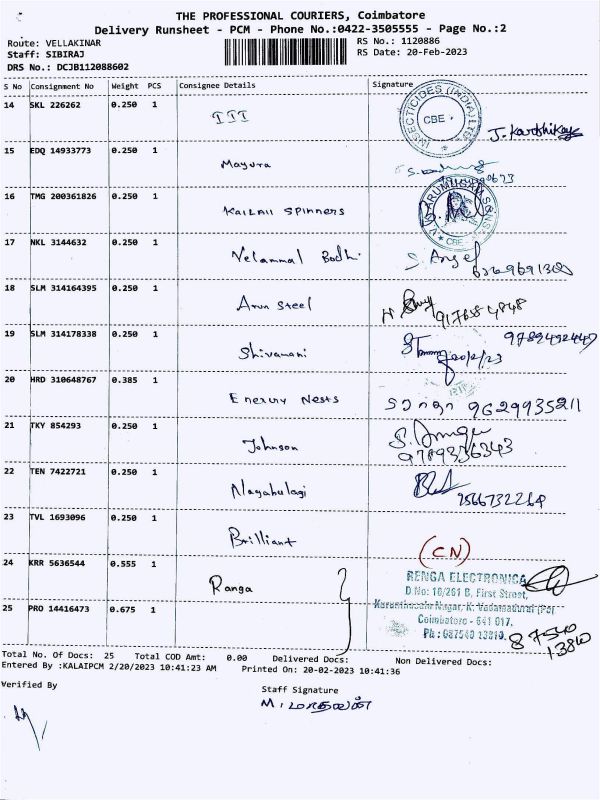 THE PROFESSIONAL COURIERS, Coimbatore
Delivery Runsheet - PCM - Phone No.:0422-3505555 - Page No.:2
Route: VELLAKINAR RS No.: 1120886
Staff: SIBIRAJ RS Date: 20-Feb-2023
DRS No.: DCJB112088602
S No Consignment No Weight PCS Consignee Details Signature
14 SKL 226262 0.250 1 III INSECTICIDES (INDIA) LTD CBE J. Karthikay
15 EDQ 14933773 0.250 1 Mayura
16 TMG 200361826 0.250 1 Kailah Spinners ARUMUGAM SONS CBE
17 NKL 3144632 0.250 1 Velammal Bodhi S. Angel
18 SLM 314164395 0.250 1 Arun Steel
19 SLM 314178338 0.250 1 Shivamani 20/2/23
20 HRD 310648767 0.385 1 Enerny Nests 9629935211
21 TKY 854293 0.250 1 Johnson 9789336343
22 TEN 7422721 0.250 1 Nagahulagi 9566732264
23 TVL 1693096 0.250 1 Brilliant (CN)
24 KRR 5636544 0.555 1 Ranga RENGA ELECTRONICA
D.No: 10/261 B, First Street,
25 PRO 14416473 0.675 1 Nagar, K. Vadamadurai (Po)
Coimbatore - 641 017.
Ph : 087540 13810.
87540
13810
Total No. Of Docs: 25 Total COD Amt: 0.00 Delivered Docs: Non Delivered Docs:
Entered By :KALAIPCM 2/20/2023 10:41:23 AM Printed On: 20-02-2023 10:41:36
Verified By Staff Signature
M. மாதவன்